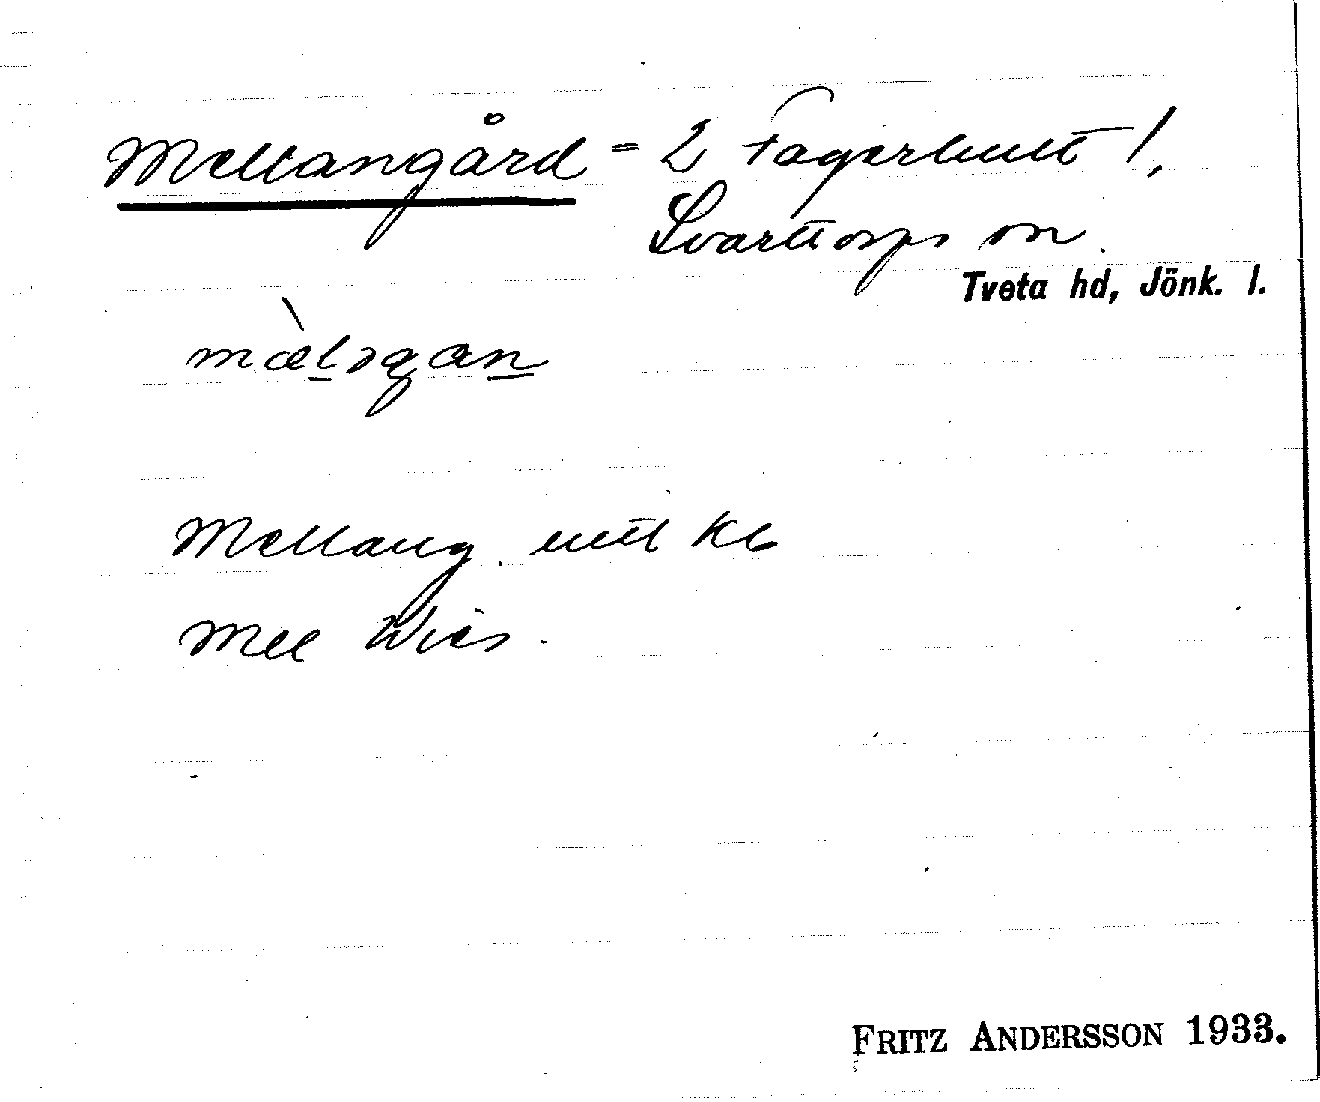 Mellangård = 2 Fagerhult 1,
Svarttorps sn.
Tveta hd, Jönk. l.
mæ̀l̠əgan̠
Mellang. uttl Kb
Mel Wies
FRITZ ANDERSSON 1933.